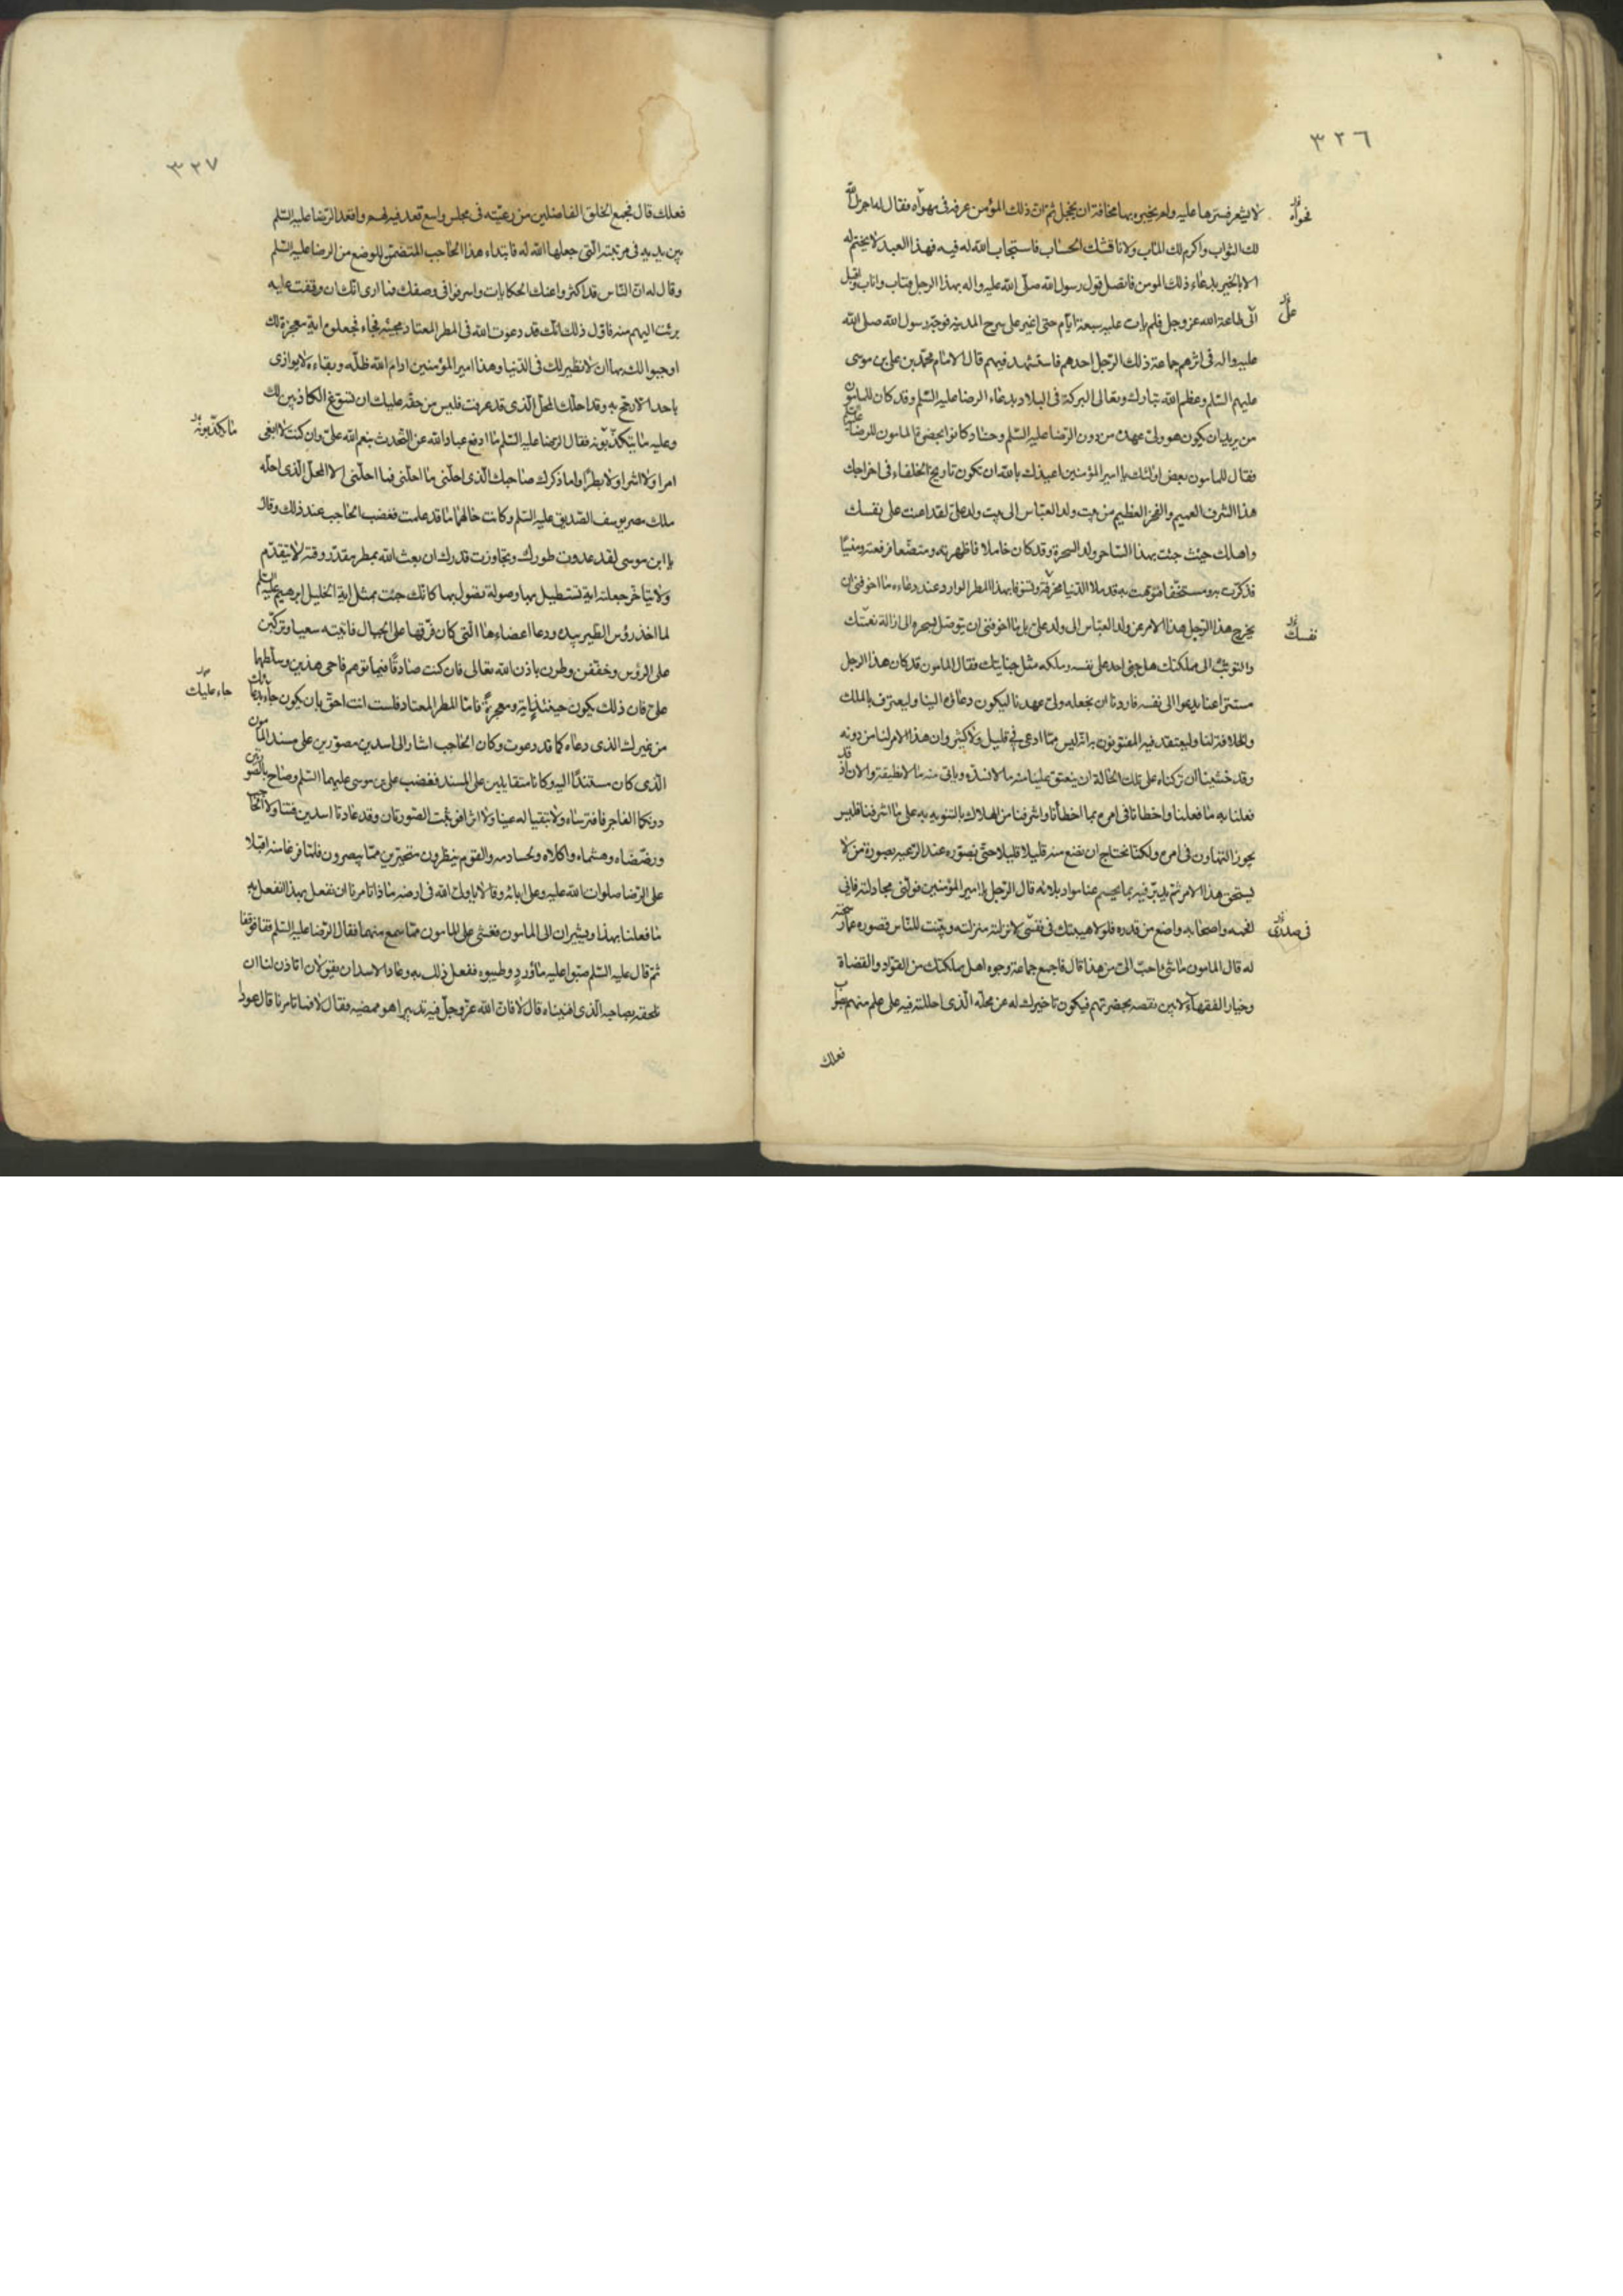 ٣٢٦
لا يشعر فسترها عليه ولم يخبره بها مخافة ان يخجل ثم ان ذلك المؤمن عرفه في مهواه فقال له اجزل الله
لك الثواب واكرم لك المآب ولا ناقشك الحساب فاستجاب الله له فيه فهذا العبد لا يختم له
الا بالخير بدعاء ذلك المومن فاتصل قول رسول الله صلى الله عليه واله بهذا الرجل فتاب واناب واقبل
الى طاعة الله عز وجل فلم يات عليه سبعة ايام حتى اغير على سرح المدينة فوجه رسول الله صلى الله
عليه واله في اثرهم جماعة ذلك الرجل احدهم فاستشهد فيهم قال الامام محمد بن على بن موسى
عليهم السلم وعظم الله تبارك وتعالى البركة في البلاد بدعاء الرضا عليه السلم وقد كان للمامون
من يريد ان يكون هو ولى عهده من دون الرضا عليه السلم وحساد كانوا بحضرة المامون للرضا عليه السلم
فقال للمامون بعض اولئك يا امير المؤمنين اعيذك بالله ان تكون تاريخ الخلفاء في اخراجك
هذا الشرف العميم والفخر العظيم من بيت ولد العباس الى بيت ولد على لقد اعنت على نفسك
واهلك حيث جئت بهذا الساحر ولد السحرة وقد كان خاملا فاظهرته ومتضعا فرفعته ومنسيا
فذكرت به ومستخفا فنوهت به قد ملا الدنيا مخرقة وتشوفا بهذا المطر الوارد عند دعاءه ما اخوفنى ان
يخرج هذا الرجل هذا الامر عن ولد العباس الى ولد على بل ما اخوفنى ان يتوصل بسحره الى ازالة نعمتك
والتوثب الى مملكتك هل جنى احد على نفسه وملكه مثل جنايتك فقال المامون قد كان هذا الرجل
مستترا عنا يدعوا الى نفسه فاردنا ان نجعله ولى عهدنا ليكون دعاؤه الينا وليعترف بالملك
والخلافة لنا وليعتقد فيه المفتونون به انه ليس مما ادعى في قليل ولا كثير وان هذا الامر لنا من دونه
وقد خشينا ان تركناه على تلك الحالة ان ينفتق علينا منه ما لا نسده وياتى منه ما لا نطيقه والان اذ قد
فعلنا به ما فعلنا واخطانا في امره بما اخطأنا واشرفنا من الهلاك بالتنويه به على ما اشرفنا فليس
يجوز التهاون في امره ولكنا نحتاج ان نضع منه قليلا قليلا حتى نصوره عند الرعيه بصورة من لا
يستحق هذا الامر ثم ندبر فيه بما يحسم عنا مواد بلائه قال الرجل يا امير المؤمنين فولنى مجادلته فانى
افحمه واصحابه واضع من قدره فلولا هيبتك في نفسى لانزلته منزلته وبينت للناس قصوره عما رشحته
له قال المامون ما شئ احب الى من هذا قال فاجمع جماعة وجوه اهل مملكتك من القواد والقضاة
وخيار الفقهاء لابين نقصه بحضرتهم فيكون تاخيرك له عن محله الذى احللته فيه على علم منهم بصواب
فعلك
نحوله
على
نفسك
في صدرى
٣٢٧
فعلك قال فجمع الخلق الفاضلين من رعيته في مجلس واسع قعد فيه لهم واقعد الرضا عليه السلم
بين يديه في مرتبته التى جعلها الله له فابتداء هذا الحاجب المتضمن للوضع من الرضا عليه السلم
وقال له ان الناس قد اكثروا عنك الحكايات واسرفوا في وصفك فما ارى انك ان وقفت عليه
برئت اليهم منه فاول ذلك انك قد دعوت الله في المطر المعتاد مجيئه فجاء فجعلوه اية معجزة لك
اوجبوا لك بها ان لا نظير لك في الدنيا وهذا امير المؤمنين ادام الله ظله وبقاءه لا يوازى
باحد الا رجح به وقد احلك المحل الذى قد عرفت فليس من حقه عليك ان تسوغ الكاذبين لك
وعليه ما يتكذبونه فقال الرضا عليه السلم ما ادفع عباد الله عن التحدث بنعم الله على وان كنت لا ابغى
امرا ولا اشرا ولا بطرا واما ذكرك صاحبك الذى احلنى ما احلنى فما احلنى الا المحل الذى احله
ملك مصر يوسف الصديق عليه السلم وكانت حالهما ما قد علمت فغضب الحاجب عند ذلك وقال
يا ابن موسى لقد عدوت طورك وتجاوزت قدرك ان بعث الله بمطر مقدر وقته لا يتقدم
ولا يتاخر جعلته اية تستطيل بها وصولة تصول بها كانك جئت بمثل اية الخليل ابرهيم عليه السلم
لما اخذ رؤس الطير بيده ودعا اعضاءها التى كان فرقها على الجبال فاتيته سعيا وتركبن
على الرؤس وخفقن وطرن باذن الله تعالى فان كنت صادقا فيما توهم فاحى هذين وسلطهما
على فان ذلك يكون حينئذ اية ومعجزة فاما المطر المعتاد فلست انت احق بان يكون جاء بدعائك
من غيرك الذى دعاه كما قد دعوت وكان الحاجب اشار الى اسدين مصورين على مسند المامون
الذى كان مستندا اليه وكانا متقابلين على المسند فغضب على بن موسى عليهما السلم وصاح بالصورتين
دونكما الفاجر فافترساه ولا تبقيا له عينا ولا اثرا فوثبت الصورتان وقد عادتا اسدين فتناولا الحاجب
ورضضاه وهشماه واكلاه ولحسا دمه والقوم ينظرون متحيرين مما يبصرون فلما فرغا منه اقبلا
على الرضا صلوات الله عليه وعلى ابائه وقالا يا ولى الله في ارضه ماذا تامرنا ان نفعل بهذا انفعل به
ما فعلنا بهذا ويشيران الى المامون فغشى على المامون مما سمع منهما فقال الرضا عليه السلم قفا فوقفا
ثم قال عليه السلم صبوا عليه ماؤرد وطيبوه ففعل ذلك به وعاد الاسدان يقولان اتاذن لنا ان
نلحقه بصاحبه الذى افنيناه قال لا فان الله عز وجل فيه تدبيرا هو ممضيه فقال لا فما تامرنا قال عودا
ما يكذبونه
جاء عليك